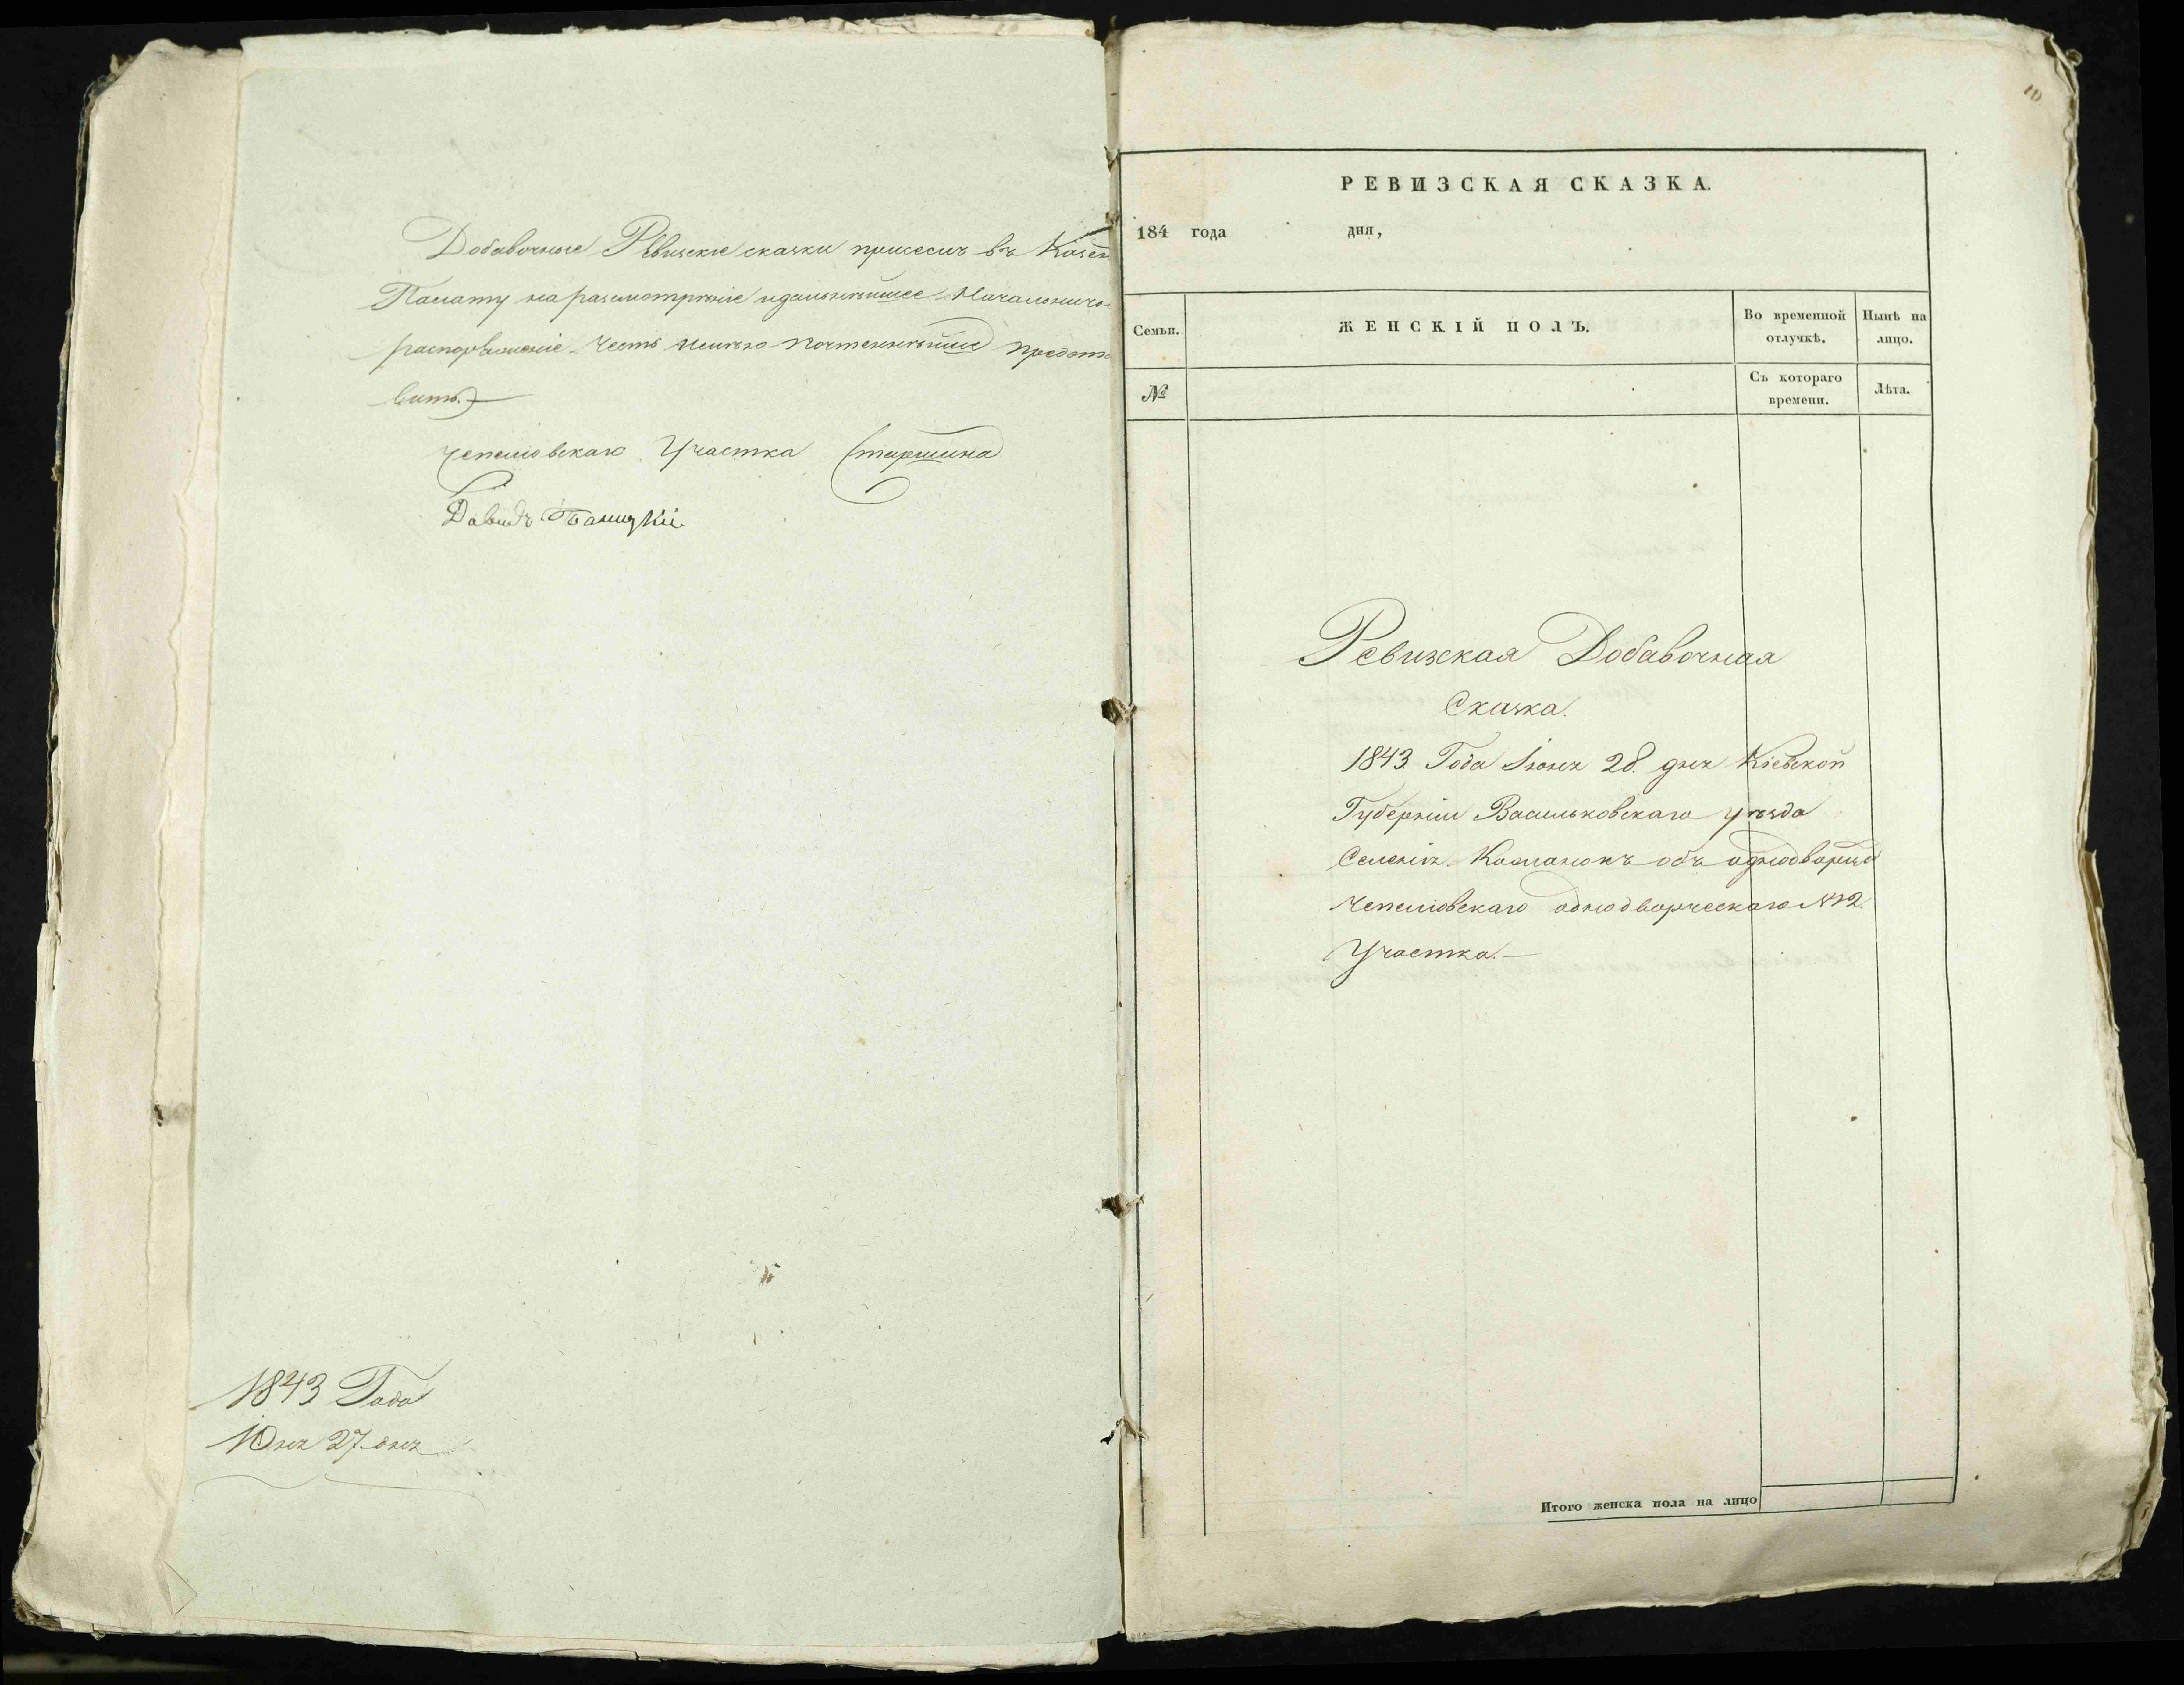 Добавочные Ревизскіе сказки при семъ въ Казен
Палату на разсмотреніе и дальнейшее Начальниче
распоряженіе честь имею почтеннейше предста
вить.
Чепелiовскаго Участка Старшина
Давидъ
1843 Года
Юня 27 дня
10
РЕВИЗСКАЯ СКАЗКА.
184 года дня,
Семьи. ЖЕНСКІЙ ПОЛЪ. Во временной отлучкѣ. Нынѣ на лицо.
№ Съ котораго времени. Лѣта.
Ревизская Добавочная
Сказка.
1843. Года Iюня 28. дня Кіевской
Губерніи Васильковскаго уѣзда
Селенія объ однодворце
Чепелiовскаго однодворческаго №2.
Участка.—
Итого женска пола на лицо